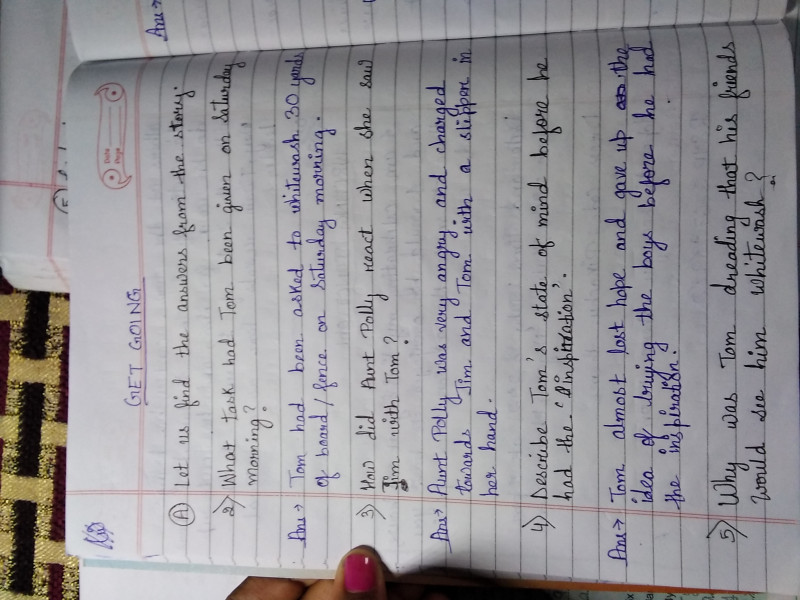 GET GOING
Date
Page
(A) Let us find the answers from the story.
2) What task had Tom been given on Saturday
morning?
Ans → Tom had been asked to whitewash 30 yards
of board/fence on Saturday morning.
3) How did Aunt Polly react when she saw
Jim with Tom?
Ans → Aunt Polly was very angry and charged
towards Jim and Tom with a slipper in
her hand.
4) Describe Tom's state of mind before he
had the 'inspiration'.
Ans → Tom almost lost hope and gave up the
idea of buying the boys before he had
the inspiration.
5) Why was Tom dreading that his friends
would see him whitewash?
Ans →